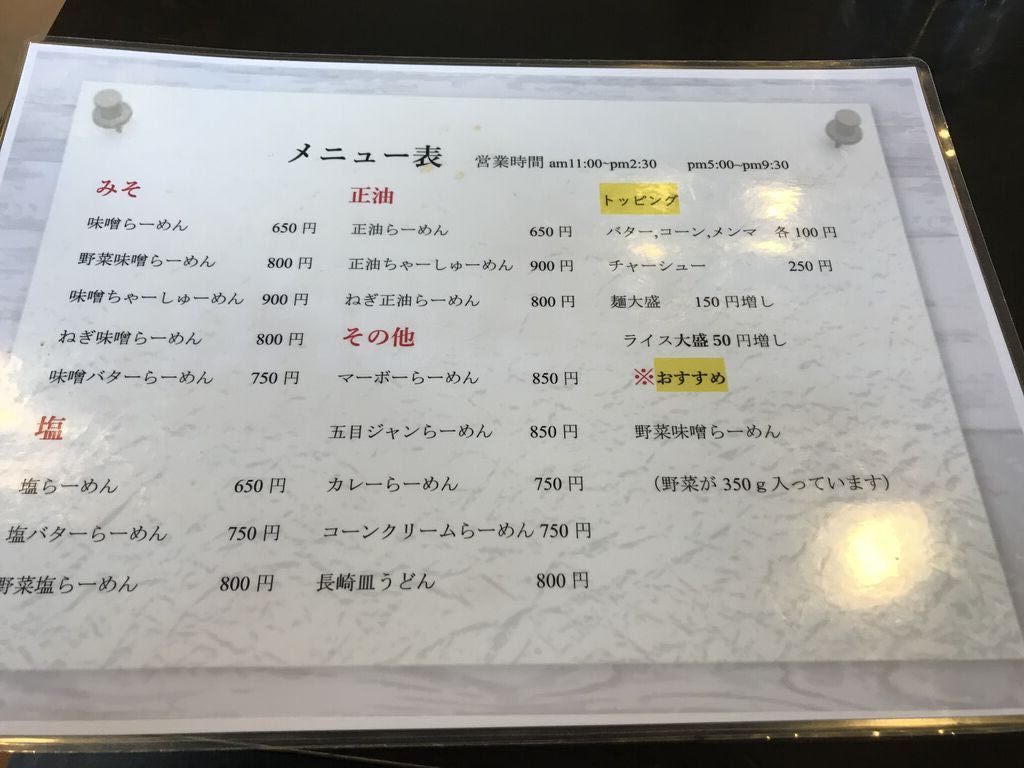 メニュー表 営業時間 am11:00~pm2:30 pm5:00~pm9:30
みそ
味噌らーめん 650円
野菜味噌らーめん 800円
味噌ちゃーしゅーめん 900円
ねぎ味噌らーめん 800円
味噌バターらーめん 750円
塩
塩らーめん 650円
塩バターらーめん 750円
野菜塩らーめん 800円
正油
正油らーめん 650円
正油ちゃーしゅーめん 900円
ねぎ正油らーめん 800円
その他
マーボーらーめん 850円
五目ジャンらーめん 850円
カレーらーめん 750円
コーンクリームらーめん 750円
長崎皿うどん 800円
トッピング
バター,コーン,メンマ 各100円
チャーシュー 250円
麺大盛 150円増し
ライス大盛50円増し
※おすすめ
野菜味噌らーめん
（野菜が350ｇ入っています）